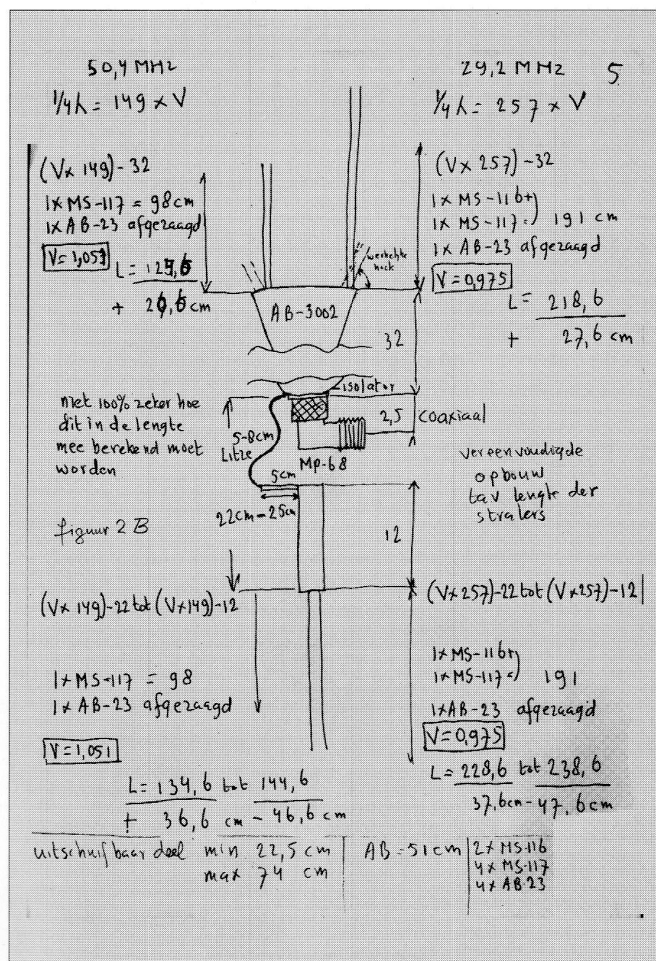 50,4 MHz
29,2 MHz 5
1/4 λ = 149 x V
1/4 λ = 257 x V
(V x 149) - 32
1x MS-117 = 98 cm
1x AB-23 afgezaagd
V = 1,051
L = 124,6
+ 26,6 cm
(V x 257) - 32
1x MS-116 +
1x MS-117 = 191 cm
1x AB-23 afgezaagd
V = 0,975
L = 218,6
+ 27,6 cm
werkelijke
hoek
AB-3002
32
isolator
2,5 coaxiaal
MP-68
5-8cm
Litze
5cm
22cm - 25cm
12
niet 100% zeker hoe
dit in de lengte
mee berekend moet
worden
figuur 2B
vereenvoudigde
opbouw
tav lengte der
stralers
(V x 149) - 22 tot (V x 149) - 12
(V x 257) - 22 tot (V x 257) - 12
1x MS-117 = 98
1x AB-23 afgezaagd
V = 1,051
L = 134,6 tot 144,6
+ 36,6 cm - 46,6 cm
1x MS-116 +
1x MS-117 = 191
1x AB-23 afgezaagd
V = 0,975
L = 228,6 tot 238,6
37,6cm - 47,6cm
uitschuifbaar deel min 22,5 cm
max 74 cm
AB = 51 cm
2x MS-116
4x MS-117
4x AB-23